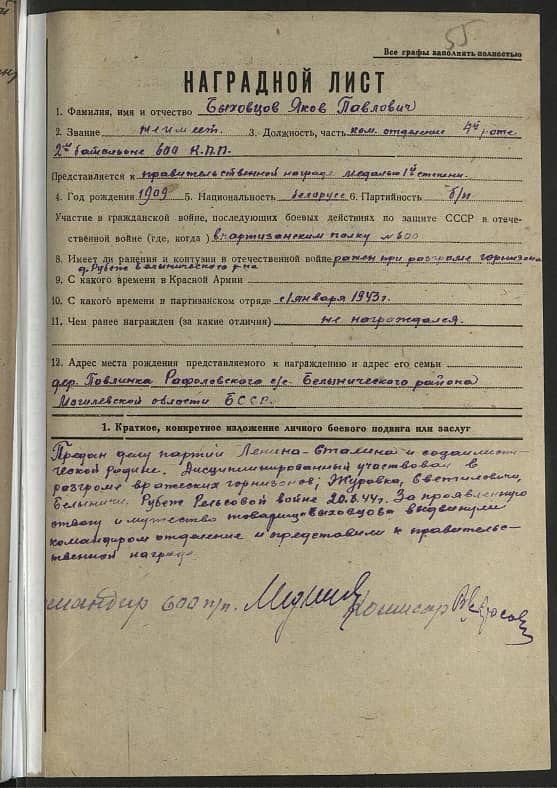 55
Все графы заполнять полностью
НАГРАДНОЙ ЛИСТ
1. Фамилия, имя и отчество Быховцов Яков Павлович
2. Звание не имеет. 3. Должность, часть ком. отделение 4й роте
2й батальоне 600 К.П.П.
Представляется к правительственной награде медалью 1й степени.
4. Год рождения 1909 5. Национальность беларусс 6. Партийность б/п
Участие в гражданской войне, последующих боевых действиях по защите СССР в отече-
ственной войне (где, когда) в партизанским полку №600
8. Имеет ли ранения и контузии в отечественной войне ранен при розгроме горнизона
д. Рубеж Белыничского р-на
9. С какого времени в Красной Армии
10. С какого времени в партизанском отряде с 1 января 1943 г.
11. Чем ранее награжден (за какие отличия) не награждался.
12. Адрес места рождения представляемого к награждению и адрес его семьи
дер. Павлинка Рафоловского с/с. Белынического района
Могилевской области БССР.
1. Краткое, конкретное изложение личного боевого подвига или заслуг
Предан делу партии Ленина-Сталина и социалисти-
ческой родине. Дисциплинированный участвовал в
розгроме вражеских горнизонов; Журовка, Светиловичи,
Белыничи. Рубеж Рельсовой войне 20.6.44г. За проявленную
отвагу и мужество товарища Быховцова выдвинули
командиром отделение и представили к правительс-
ственной награде
командир 600 п/п. Комисар